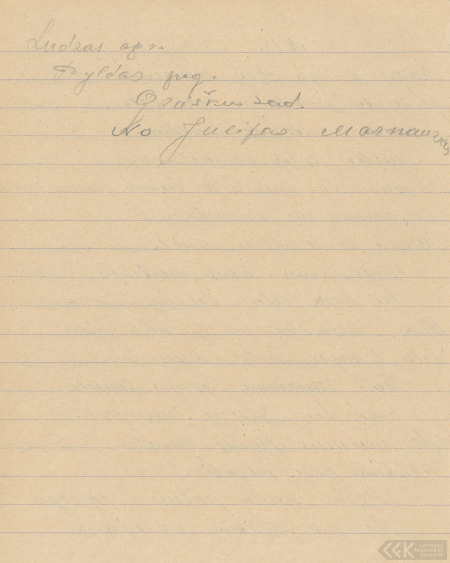 Ludzas apr.
Pyldas pag.
Grušku sad.
No Julijas Marnauzas